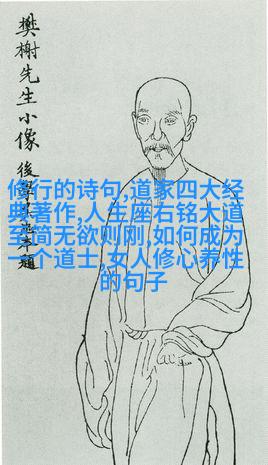 樊榭先生小像
後
題
修行的诗句,道家四大经
典著作,人生座右铭大道
至简无欲则刚,如何成为
一个道士,女人修心养性
的句子